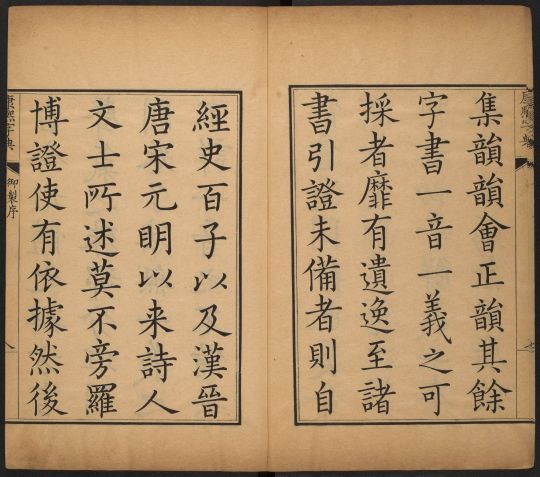 康熙字典
七
集韻韻會正韻其餘
字書一音一義之可
採者靡有遺逸至諸
書引證未備者則自
經史百子以及漢晉
唐宋元明以来詩人
文士所述莫不旁羅
博證使有依據然後
康熙字典
御製序
八